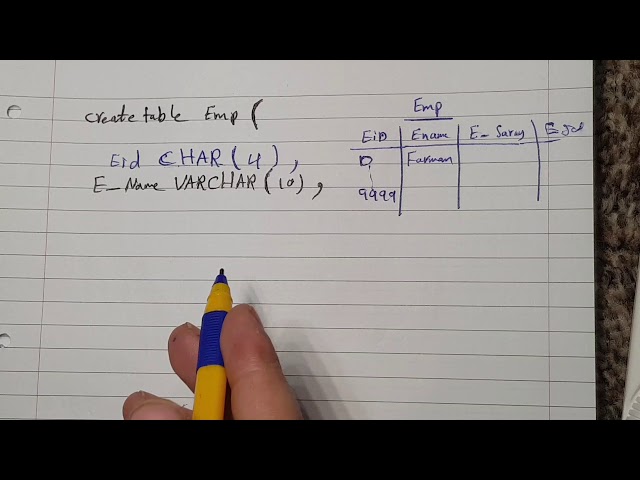 create table Emp (
Eid CHAR (4),
E_Name VARCHAR (10),
Emp
EiD Ename E_Saray
0 Farman
9999